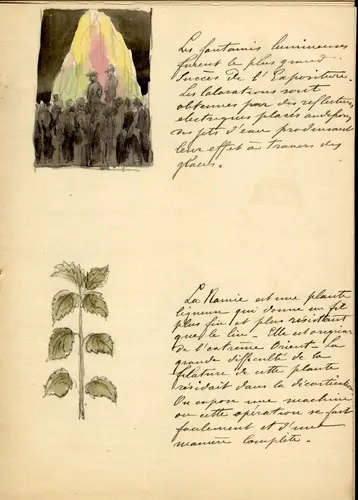 Les fontaines lumineuses
furent le plus grand
succès de l'Exposition.
Les colorations sont
obtenues par des reflecteurs
electriques placés
des jets d'eau produisant
leur effet à travers des
glaces.
La Ramie est une plante
ligneuse qui donne un fil
plus fin et plus résistant
que le lin - Elle est originaire
de l'extrême Orient - La
grande difficulté de la
filature de cette plante
résidait dans la décortication
On expose une machine
où cette opération se fait
facilement et d'une
manière complète.